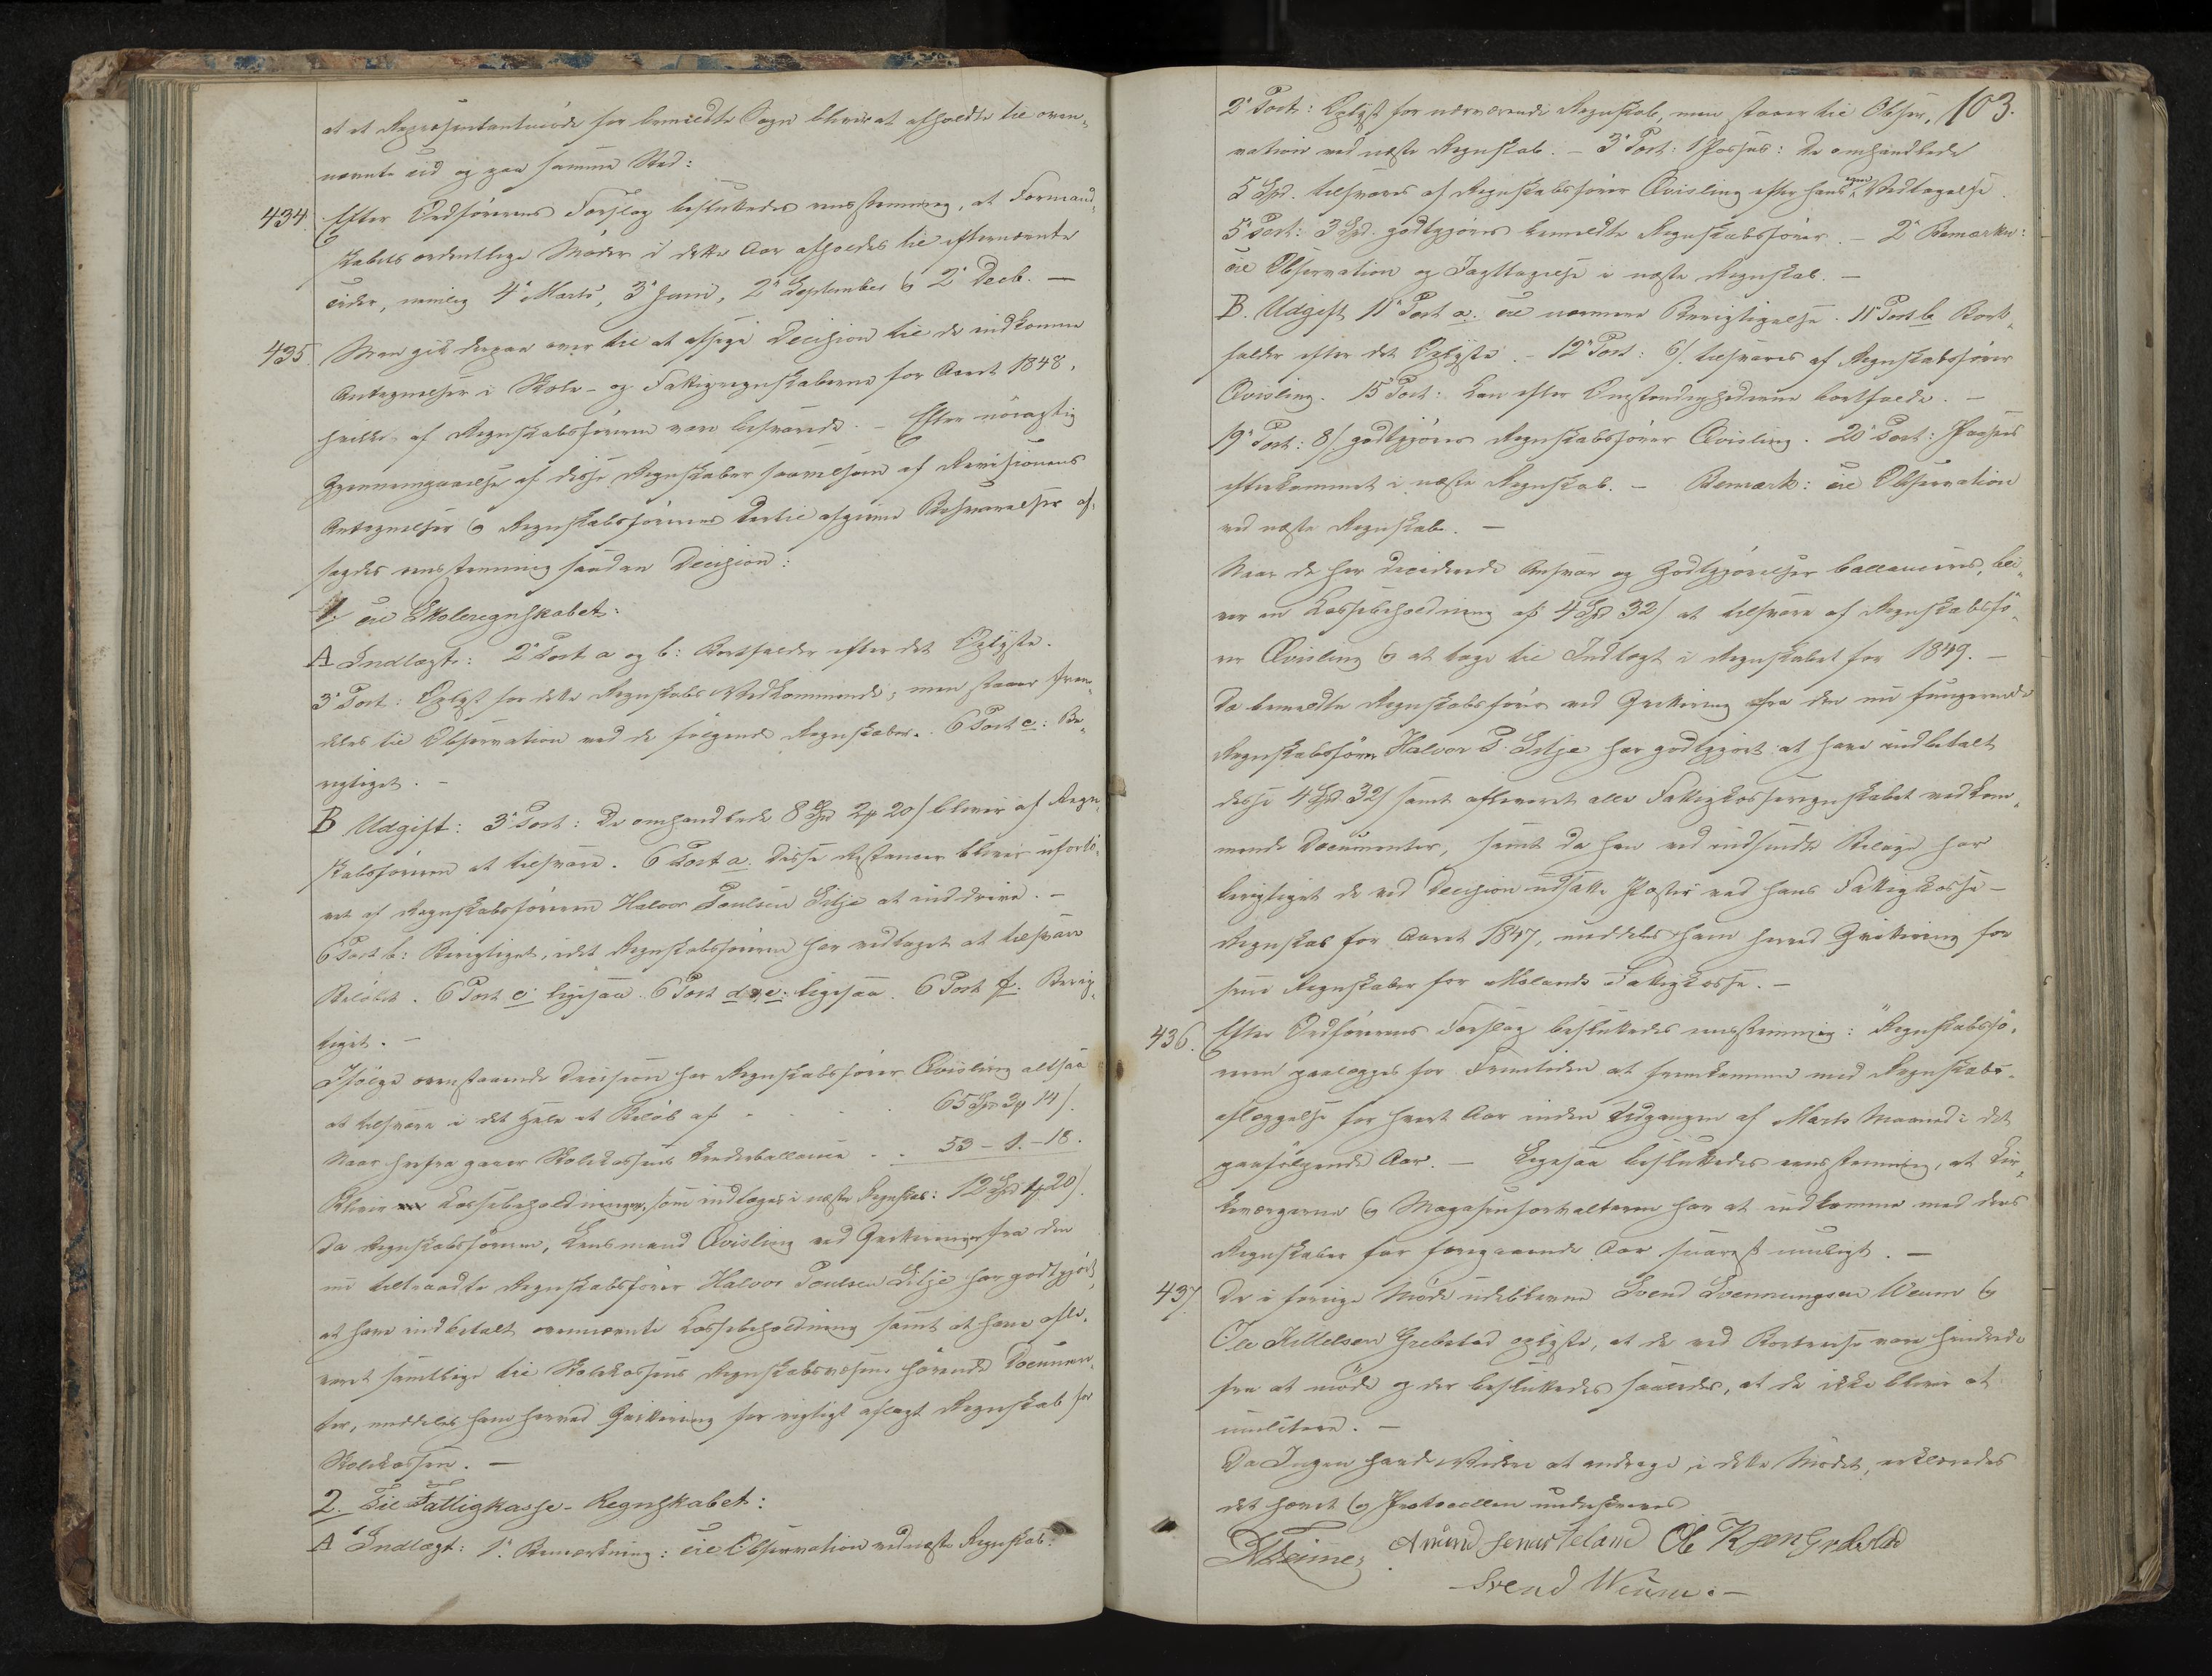 at et Repræsentantmøde for bemeldte Sogn bliver at afholdte til oven-
nævnte tid og paa samme Sted:
434. Efter Ordførerens Forslag besluttedes eenstemmig, at Formand-
skabets ordentlige Møder i dette Aar afholdes til efternævnte
Tider, nemlig 4de Marts, 3de Juni, 2den September og 2den Decb. —
435. Man gik derpaa over til at afsige Decision til de indkomne
Antegnelser i Skole- og Fattigregnskaberne for Aaret 1848,
hvilke af Regnskabsføreren vare besvarede. – Efter nøiagtig
Gjennemgaaelse af disse Regnskaber saavelsom af Revisionens
Antegnelser og Regnskabsførerens dertil afgivne Besvarelser af-
sagdes eenstemmig saadan Decision:
1. Til Skoleregnskabet:
A Indtægt: 2den Post a og b: Bortfalder efter det Oplyste.
3die Post: Oplyst for dette Regnskabs Vedkommende; men staaer frem-
deles til Observation ved de følgende Regnskaber. 6 Post c: Be-
rigtiget. –
B Udgift: 3die Post: De omhandlede 8 Spd 2 # 20 s bliver af Regn-
skabsføreren at tilsvare. 6 Post a. Disse Restancer bliver ufortø-
vet af Regnskabsføreren Halvor Poulsen Lilje at inddrive. –
6 Post b: Berigtiget, idet Regnskabsføreren har vedtaget at tilsvare
Beløbet. 6 Post c: ligesaa. 6 Post d & e: ligesaa. 6 Post f. Berig-
tiget. –
Ifølge ovenstaaende Decision har Regnskabsfører Qvisling altsaa
at tilsvare i det Hele et Beløb af . . . . 65 Spd 3 # 14 s.
Naar herfra gaaer Skolekassens Underballance . . 53 – 1. – 18.
Bliver Kassebeholdningen, som indtages i næste Regnskab: 12 Spd 1 # 20 s.
Da Regnskabsføreren, Lensmand Qvisling ved Qvittering fra den
nu tiltraadte Regnskabsfører Halvor Poulsen Lilje har godtgjort,
at have indbetalt ovennævnte Kassebeholdning samt at have afle-
veret samtlige til Skolekassens Regnskabsvæsen hørende Documen-
ter, meddeles ham herved Qvittering for rigtigt aflagt Regnskab for
Skolekassen. —
2. Til Fattigkasse-Regnskabet:
A Indtægt: 1. Bemærkning: til Observation ved næste Regnskab.
103.
2den Post: Oplyst for nærværende Regnskab, men staaer til Obser-
vation ved næste Regnskab. – 3die Post: 1 Passus: De omhandlede
5 Spd. tilsvares af Regnskabsfører Qvisling efter hans egen Vedtagelse.
5te Post: 3 Spd. godtgjøres bemeldte Regnskabsfører. – 2den Bemærkn:
til Observation og Iagttagelse i næste Regnskab. –
B. Udgift 11te Post a. til nærmere Berigtigelse. 11te Post b Bort-
falder efter det Oplyste. – 12te Post: 6 s. tilsvares af Regnskabsfører
Qvisling. 15 Post: Kan efter Omstændighederne bortfalde. –
19de Post: 8 s. godtgjøres Regnskabsfører Qvisling. 20de Post: Paasees
efterkommet i næste Regnskab. – Bemærk: til Observation
ved næste Regnskab. –
Naar de her deciderede Ansvar og Godtgjørelser ballanceres, bli-
ver en Kassebeholdning af 4 Spd 32 s at tilsvare af Regnskabsfø-
rer Qvisling og at tage til Indtægt i Regnskabet for 1849. –
Da bemeldte Regnskabsfører ved Qvittering fra den nu fungerende
Regnskabsfører Halvor P. Lilje har godtgjort at have indbetalt
disse 4 Spd 32 s samt afleveret alle Fattigkasseregnskabet vedkom-
mende Documenter, samt da han ved indsendte Bilage har
berigtiget de ved Decision udsatte Poster ved hans Fattigkasse-
Regnskab for Aaret 1847, meddeles ham herved Qvittering for
sine Regnskaber for Molands Fattigkasse. –
436. Efter Ordførerens Forslag besluttedes eenstemmig: "Regnskabsfø-
reren paalægges for Fremtiden at fremkomme med Regnskabs-
aflæggelse for hvert Aar inden Udgangen af Marts Maaned i det
paafølgende Aar. – Ligesaa besluttedes eenstemmig, at Kir-
keværgerne og Magasinforvalteren har at indkomme med deres
Regnskaber for foregaaende Aar snarest muligt. –
437. De i forrige Møde udeblevne Svend Svennungsen Weum og
Ole Kittelsen Grebstad oplyste, at de ved Bortreise vare hindrede
fra at møde og der besluttedes saaledes, at de ikke bliver at
mulktere. –
Da Ingen havde Videre at andrage i dette Møde, erklæredes
det hævet og Protocollen underskreves
Amund Teland Ole K søn Grebstad
Svend Weum. –